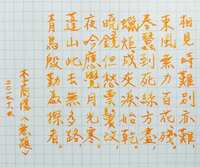 相見時難別亦難
東風無力百花殘
春蠶到死絲方盡
蠟炬成灰淚始乾
曉鏡但愁雲鬢改
夜吟應覺月光寒
蓬山此去無多路
青鳥殷勤為探看
李商隱《無題》